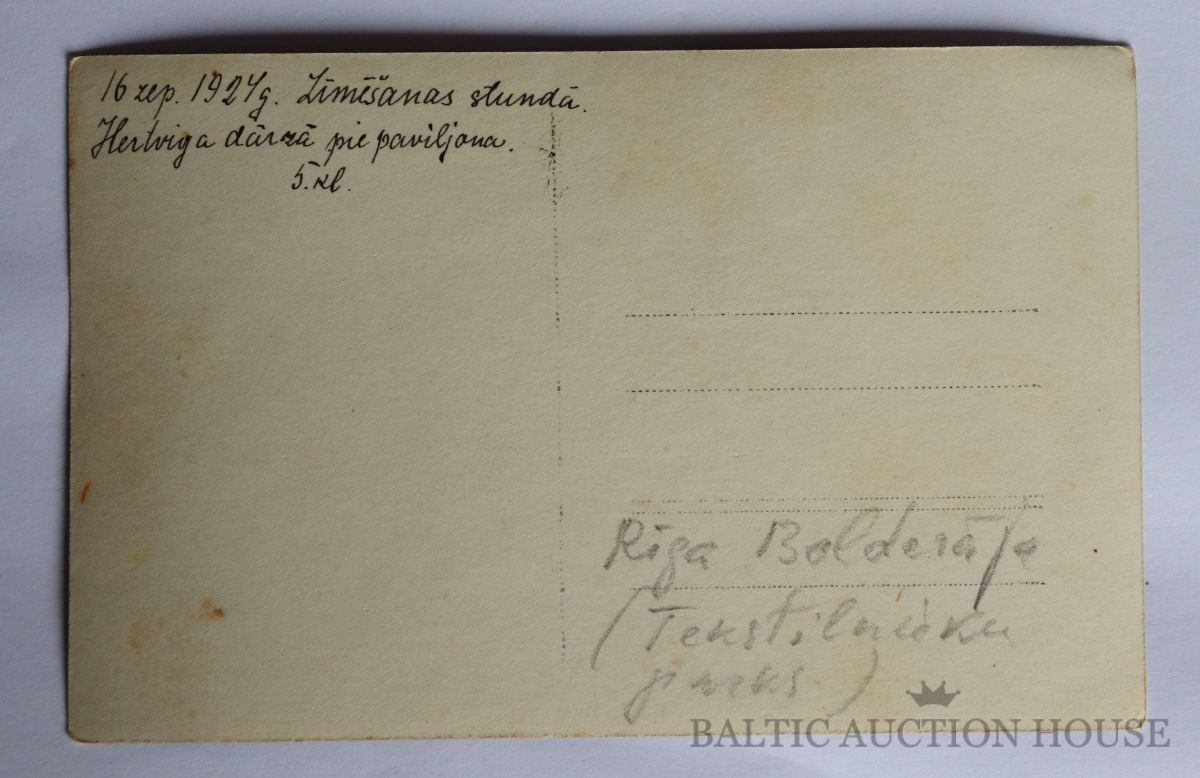 16 sep. 1927g. Zīmēšanas stundā.
Hertviga dārzā pie paviljona.
5. kl.
Rīga Bolderāja
(Tekstilnieku
parks)
BALTIC AUCTION HOUSE